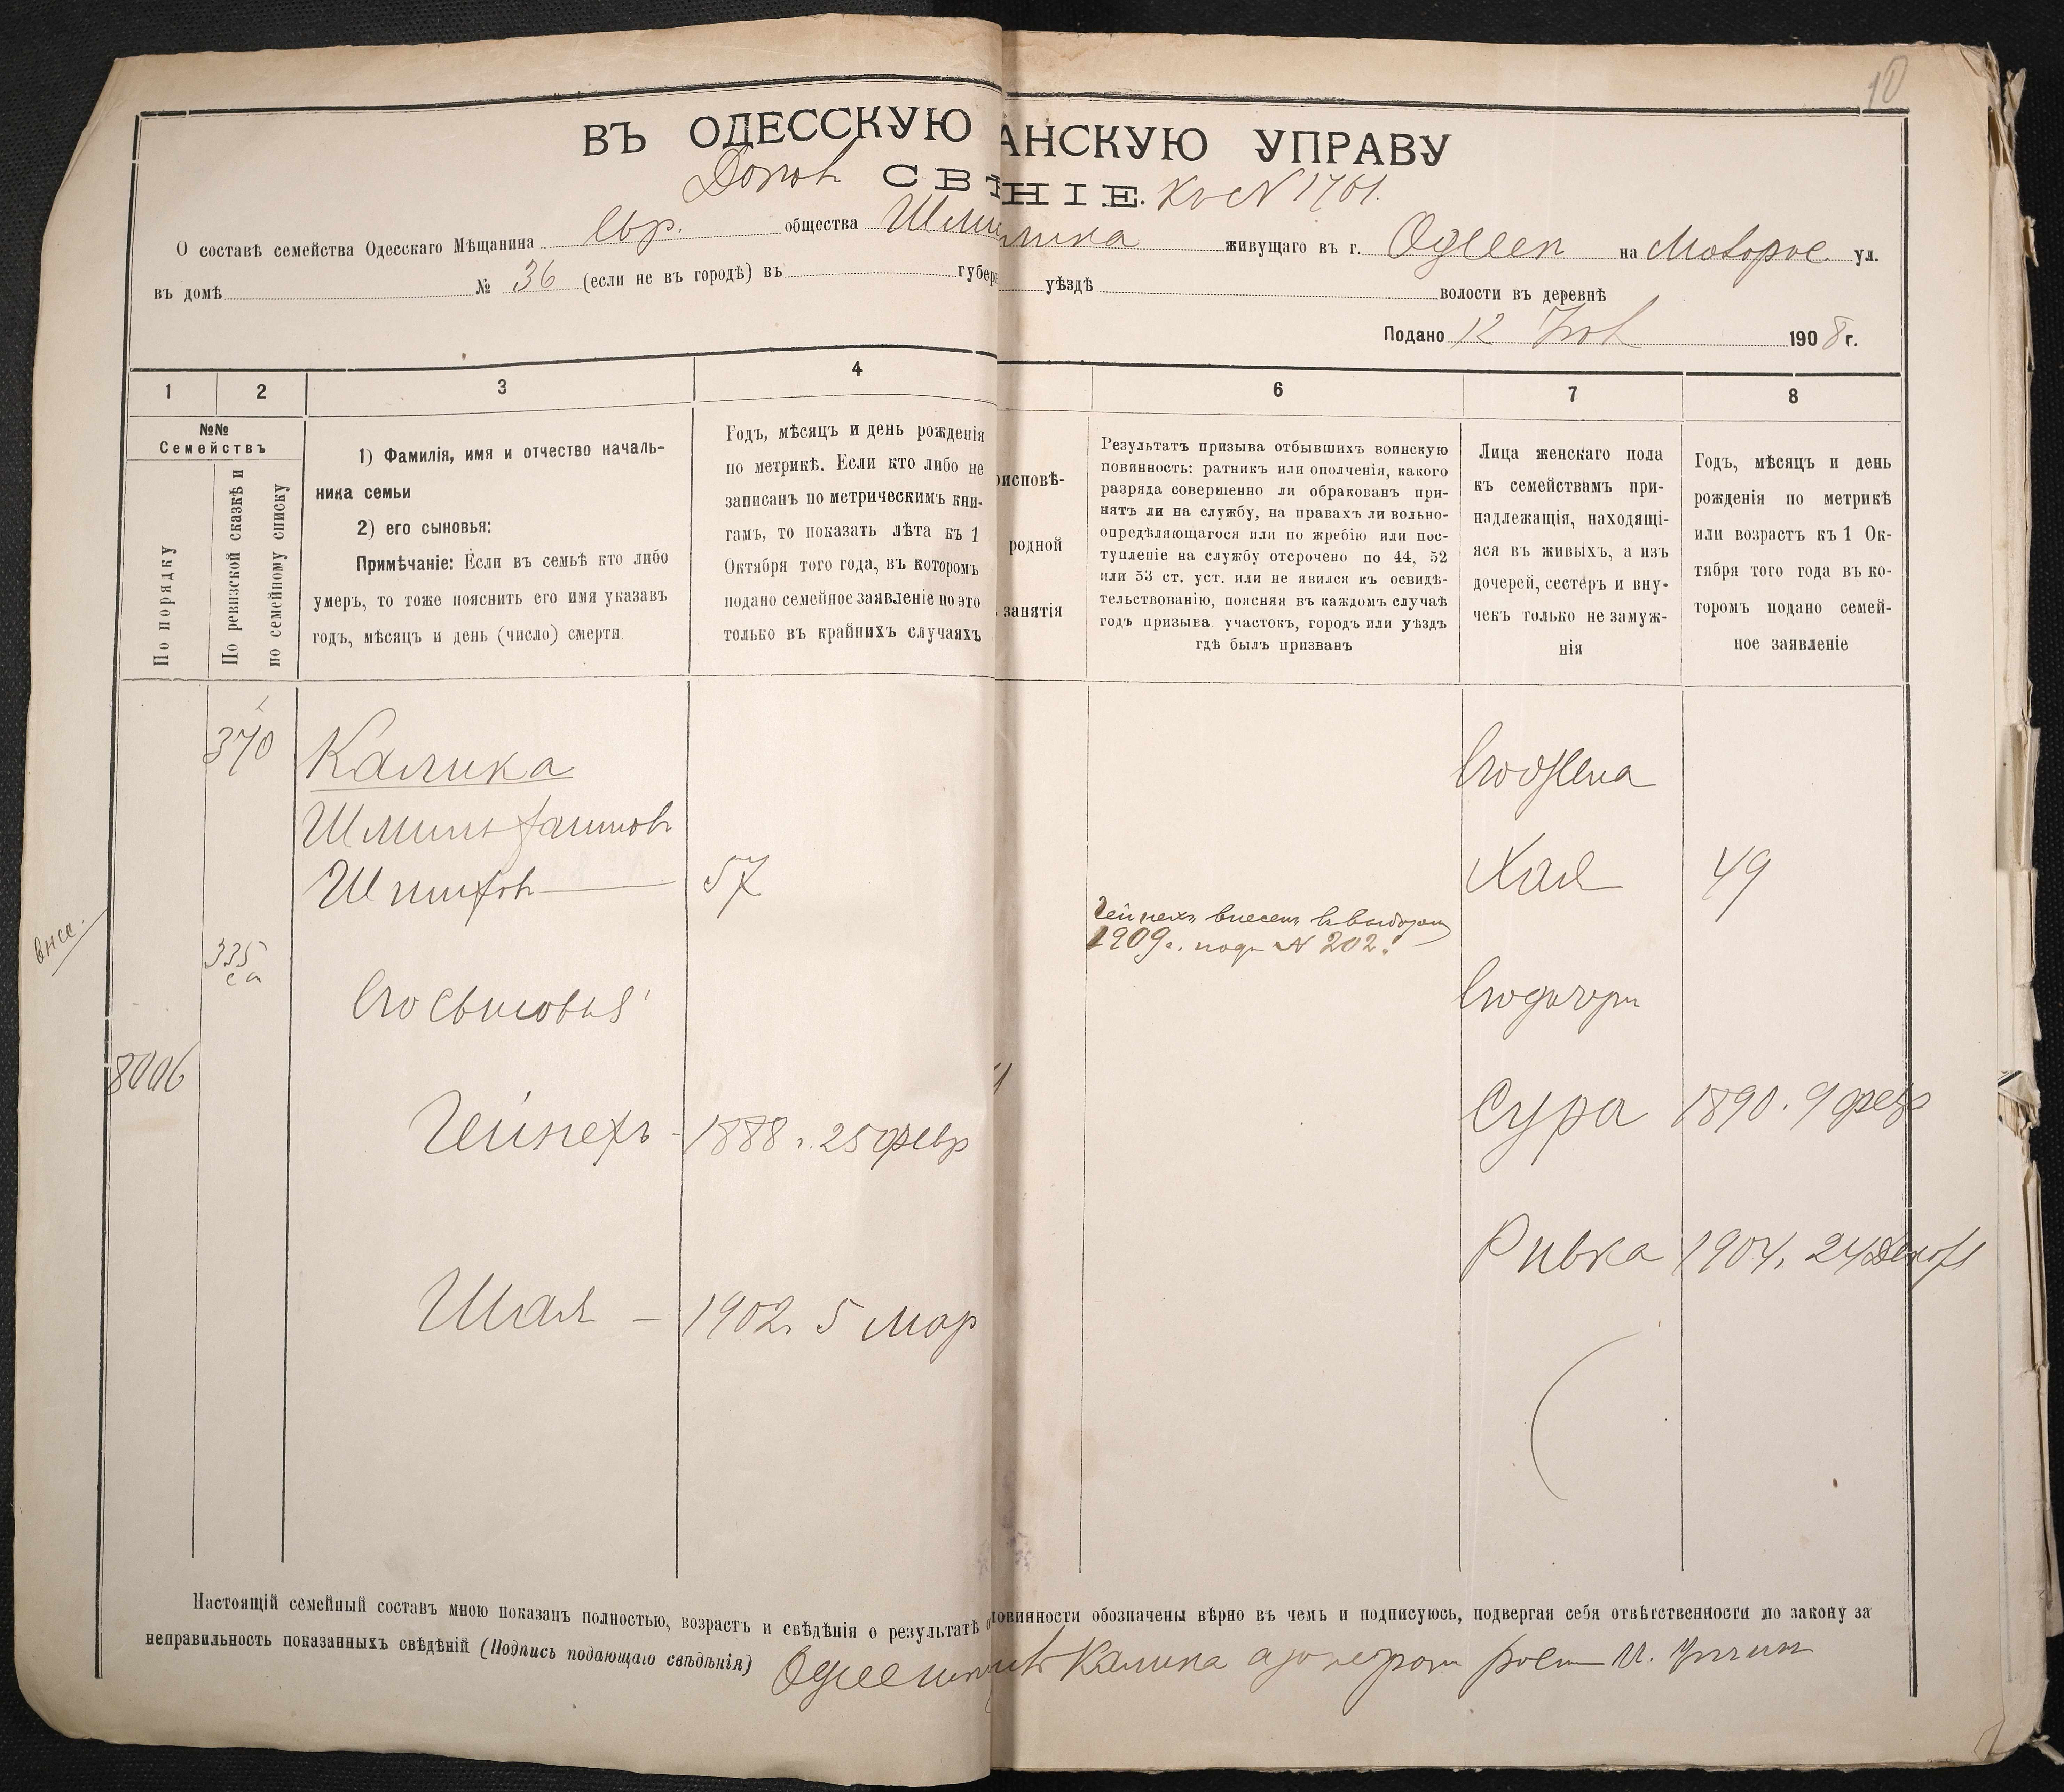 10
ВЪ ОДЕССКУЮ АНСКУЮ УПРАВУ
СВѢНІЕ. Къ № 1761.
О составѣ семейства Одесскаго Мѣщанина Евр. общества живущаго въ г. Одессѣ на ул.
въ домѣ № 36 (если не въ городѣ) въ губерн уѣздѣ волости въ деревнѣ
Подано 12 Нов 1908 г.
1 2 3 4 6 7 8
№№ Семействъ
По порядку
По ревизской сказкѣ и по семейному списку
1) Фамилія, имя и отчество началь-
ника семьи
2) его сыновья:
Примѣчаніе: Если въ семьѣ кто либо
умеръ, то тоже пояснить его имя указавъ
годъ, мѣсяцъ и день (число) смерти.
Годъ, мѣсяцъ и день рожденія
по метрикѣ. Если кто либо не
записанъ по метрическимъ кни-
гамъ, то показать лѣта къ 1
Октября того года, въ которомъ
подано семейное заявленіе но это
только въ крайнихъ случаяхъ
исповѣ-
родной
занятія
Результатъ призыва отбывшихъ воинскую
повинность: ратникъ или ополченія, какого
разряда совершенно ли обракованъ при-
нятъ ли на службу, на правахъ ли вольно-
опредѣляющагося или по жребію или пос-
тупленіе на службу отсрочено по 44, 52
или 53 ст. уст. или не явился къ освидѣ-
тельствованію, поясняя въ каждомъ случаѣ
годъ призыва участокъ, городъ или уѣздъ
гдѣ былъ призванъ
Лица женскаго пола
къ семействамъ при-
надлежащія, находящі-
яся въ живыхъ, а изъ
дочерей, сестеръ и вну-
чекъ только не замуж-
нія
Годъ, мѣсяцъ и день
рожденія по метрикѣ
или возрастъ къ 1 Ок-
тября того года въ ко-
торомъ подано семей-
ное заявленіе
370 Калика Его жена
Шмиль
57 Хая 49
Гейнехъ внесенъ
1909 г. подъ № 202.
внес.
335
Его сыновья Его дочери
8006
Гейнехъ - 1888 г. 25 февр Сура 1890. 9 февр
Ривка 1904. 24 Декабр
Шая - 1902 г. 5 мар
Настоящій семейный составъ мною показанъ полностью, возрастъ и свѣдѣнія о результатѣ о повинности обозначены вѣрно въ чемъ и подписуюсь, подвергая себя отвѣтственности по закону за
неправильность показанныхъ свѣдѣній (Подпись подающаго свѣдѣнія) Калика